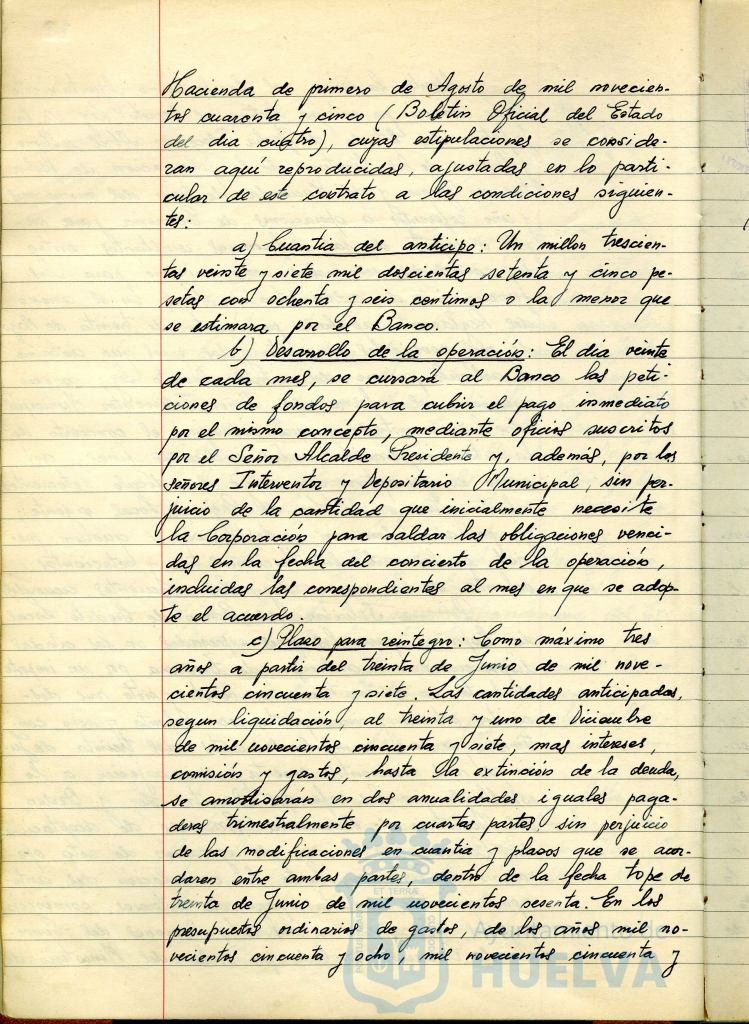 Hacienda de primero de Agosto de mil novecien-
tos cuarenta y cinco (Boletin Oficial del Estado
del dia cuatro), cuyas estipulaciones se conside-
ran aquí reproducidas, ajustadas en lo parti-
cular de este contrato a las condiciones siguien-
tes:
a) Cuantia del anticipo: Un millon trescien-
tas veinte y siete mil doscientas setenta y cinco pe-
setas con ochenta y seis centimos o la menor que
se estimara por el Banco.
b) Desarrollo de la operación: El dia veinte
de cada mes, se cursará al Banco las peti-
ciones de fondos para cubrir el pago inmediato
por el mismo concepto, mediante oficios suscritos
por el Señor Alcalde Presidente y, además, por los
señores Interventor y Depositario Municipal, sin per-
juicio de la cantidad que inicialmente necesite
la Corporación para saldar las obligaciones venci-
das en la fecha del concierto de la operación,
incluidas las correspondientes al mes en que se adop-
te el acuerdo.
c) Plazo para reintegro: Como máximo tres
años a partir del treinta de Junio de mil nove-
cientos cincuenta y siete. Las cantidades anticipadas,
segun liquidación, al treinta y uno de Diciembre
de mil novecientos cincuenta y siete, mas intereses,
comisión y gastos, hasta la extinción de la deuda,
se amortizarán en dos anualidades iguales paga-
deras trimestralmente por cuartas partes sin perjuicio
de las modificaciones en cuantia y plazos que se acor-
daren entre ambas partes, dentro de la fecha tope de
treinta de Junio de mil novecientos sesenta. En los
presupuestos ordinarios de gastos, de los años mil no-
vecientos cincuenta y ocho, mil novecientos cincuenta y
ET TERRÆ
Ayuntamiento de
HUELVA